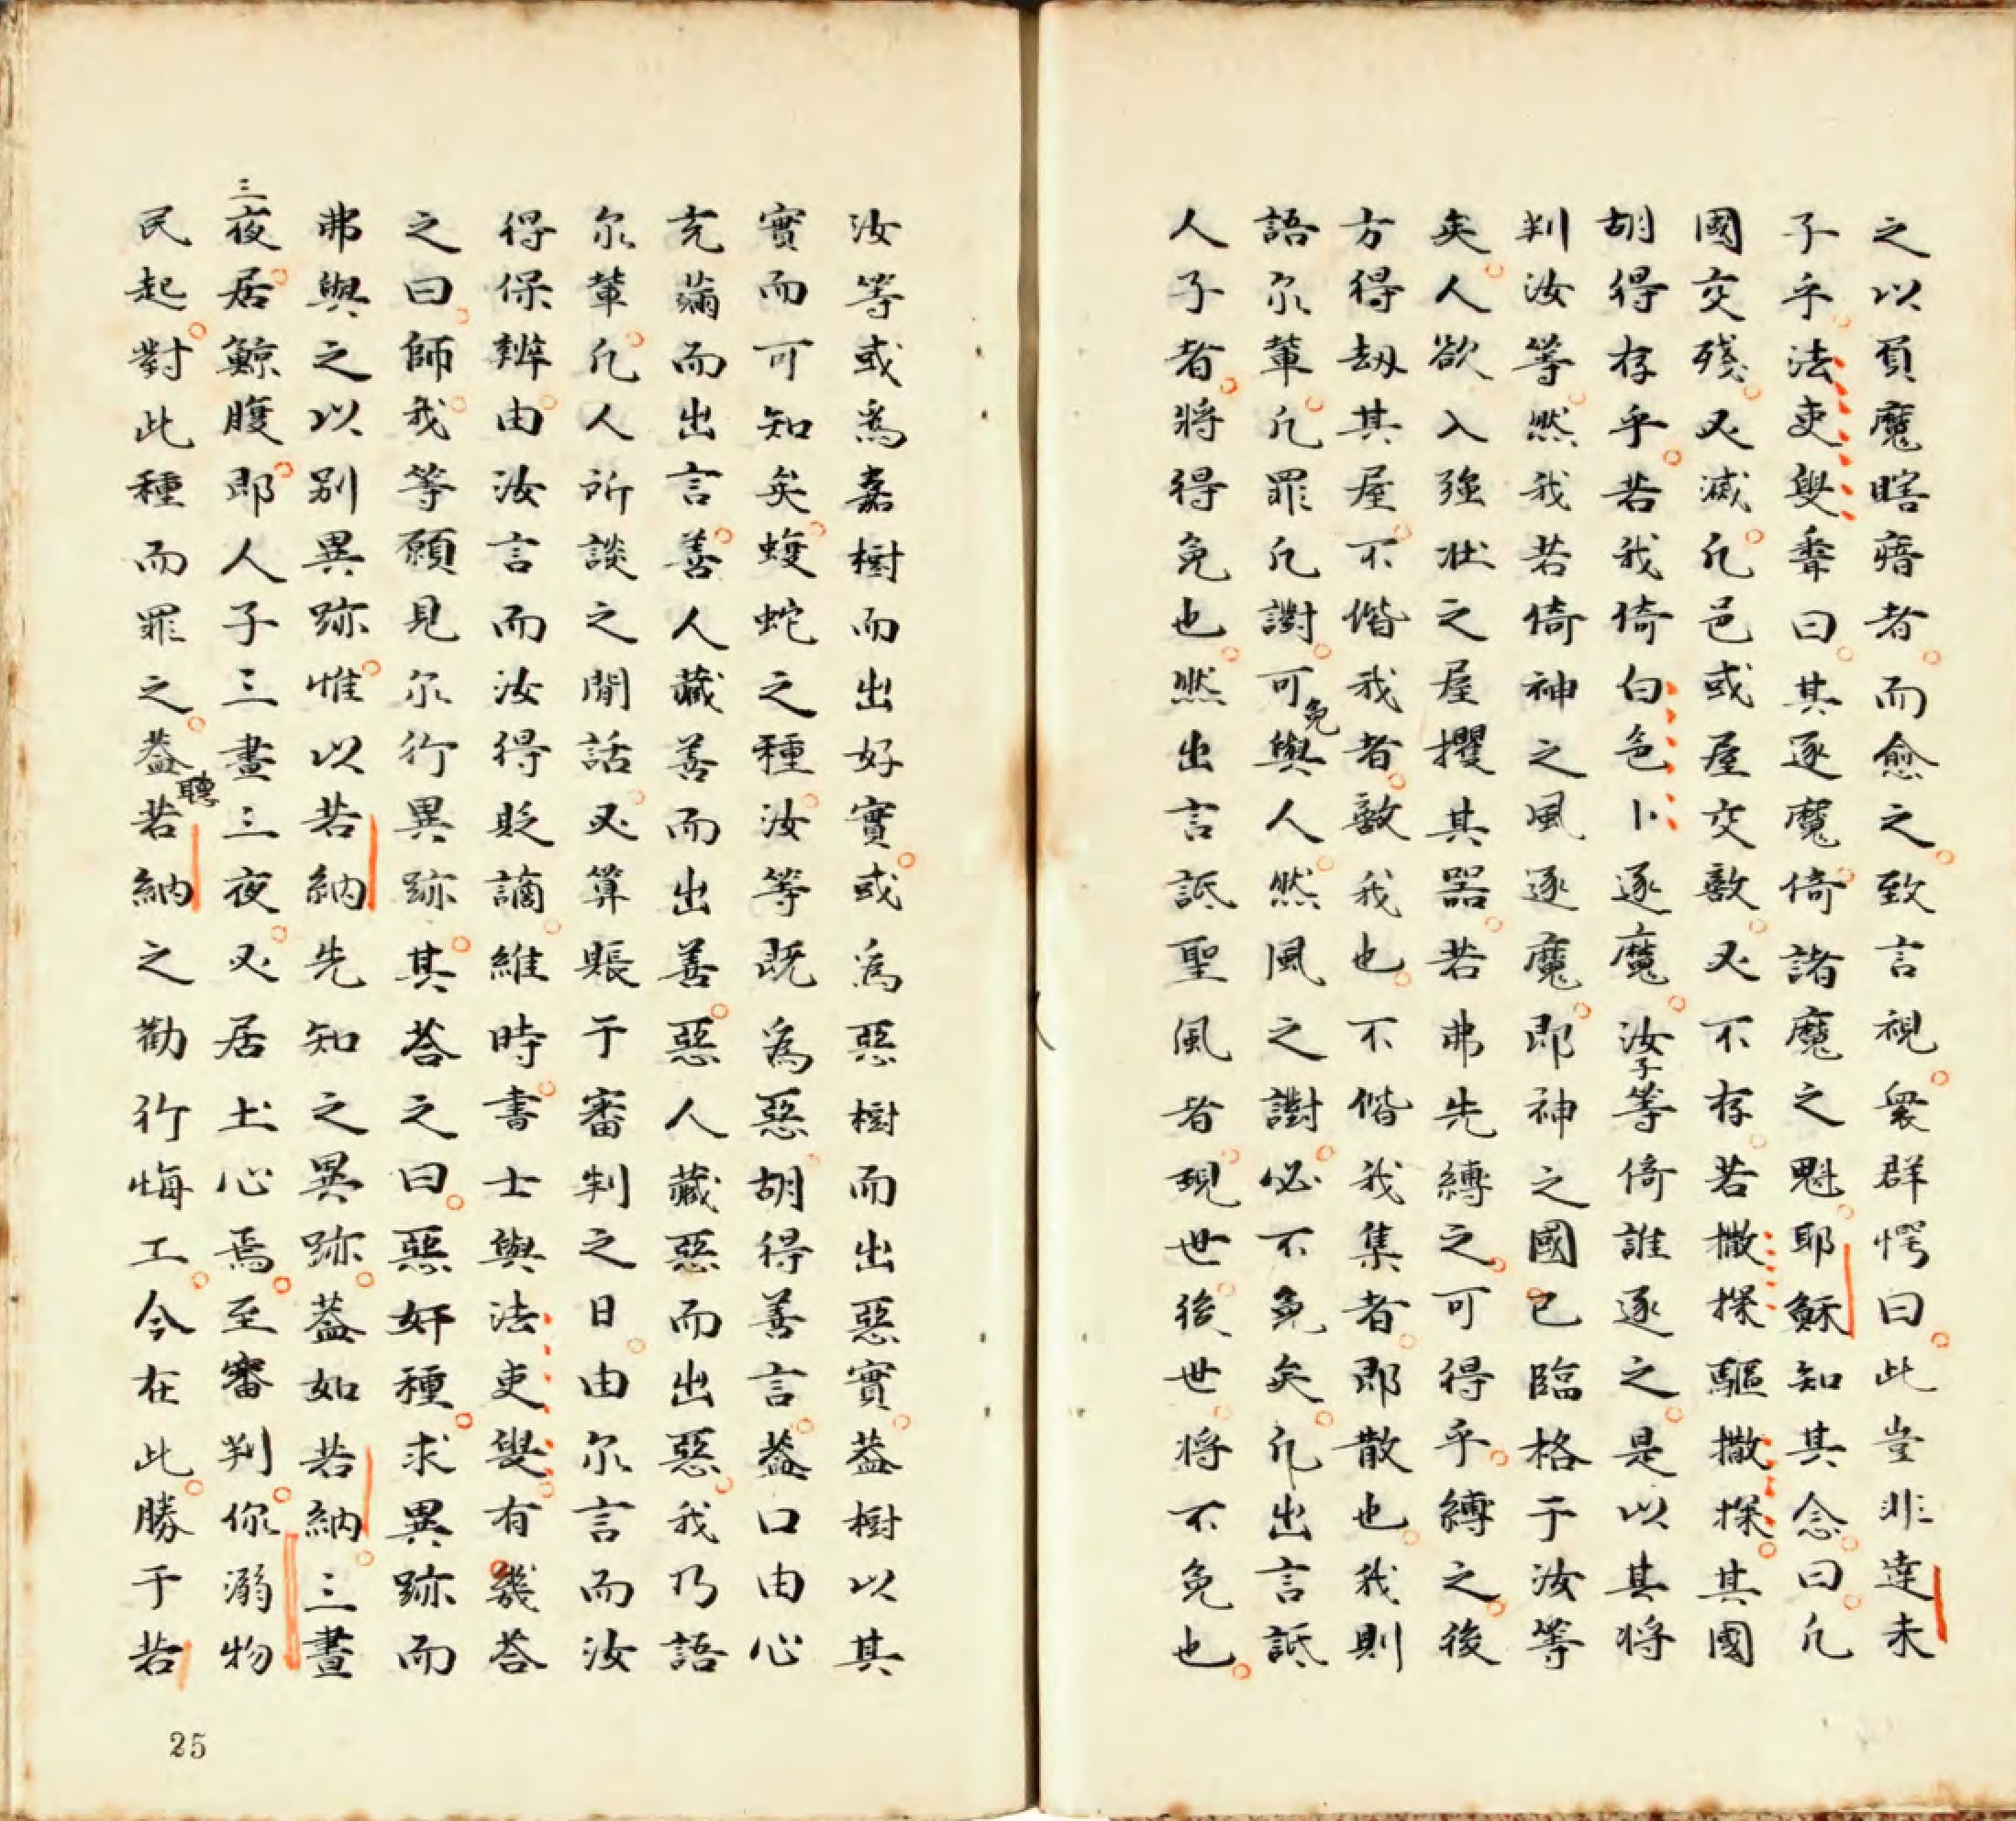 之以負魔瞎瘖者而愈之致言視衆群愕曰此豈非達未
子乎法吏㕁舝曰其逐魔倚諸魔之魁耶穌知其念曰凡
國交殘必滅凡邑或屋交敵必不存若撒探驅撒探其國
胡得存乎若我倚白色卜逐魔汝子等倚誰逐之是以其將
判汝等然我若倚神之風逐魔即神之國已臨格于汝等
矣人欲入强壯之屋攫其器若弗先縛之可得乎縛之後
方得刼其屋不偕我者敵我也不偕我集者即散也我則
語尔輩凡罪凡讟可免與人然風之讟必不免矣凡出言詆
人子者將得免也然出言詆聖風者現世後世將不免也
汝等或為嘉樹而出好實或為惡樹而出惡實蓋樹以其
實而可知矣蝮蛇之種汝等既為惡胡得善言蓋口由心
充滿而出言善人藏善而出善惡人藏惡而出惡我乃語
尔輩凡人所談之閒話必算賬于審判之日由尔言而汝
得保辨由汝言而汝得貶謫維時書士與法吏㕁有幾荅
之曰師我等願見尔行異跡其荅之曰惡奸種求異跡而
弗與之以别異跡惟以若納先知之異跡蓋如若納三晝
三夜居鯨腹即人子三晝三夜必居土心焉至審判你溺物
民起對此種而罪之蓋聽若納之勸行悔工今在此勝于若
25